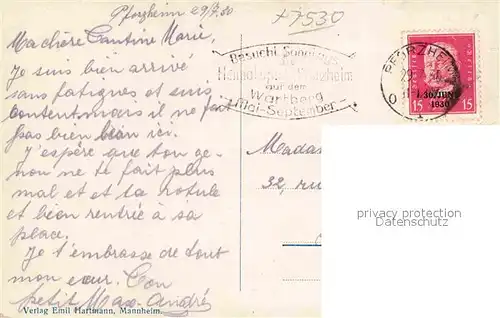 Pforzheim 29/7.30
+7530
Ma chère Tantine Marie,
Je suis bien arrivé
sans fatigues et suis
content, mais il ne fait
pas bien bien ici.
J'espère que ton ge-
nou ne te fait plus
mal et et ta rotule
et bien rentrée à sa
place.
Je t'embrasse de tout
mon cœur. Ton
petit Max-André
Besucht Sonntags
die
auf dem
Wartberg
Mai-September
PFORZHE
15 15
30. JUNI
1930
Madam
32, ru
privacy protection
Datenschutz
Verlag Emil Hartmann, Mannheim.